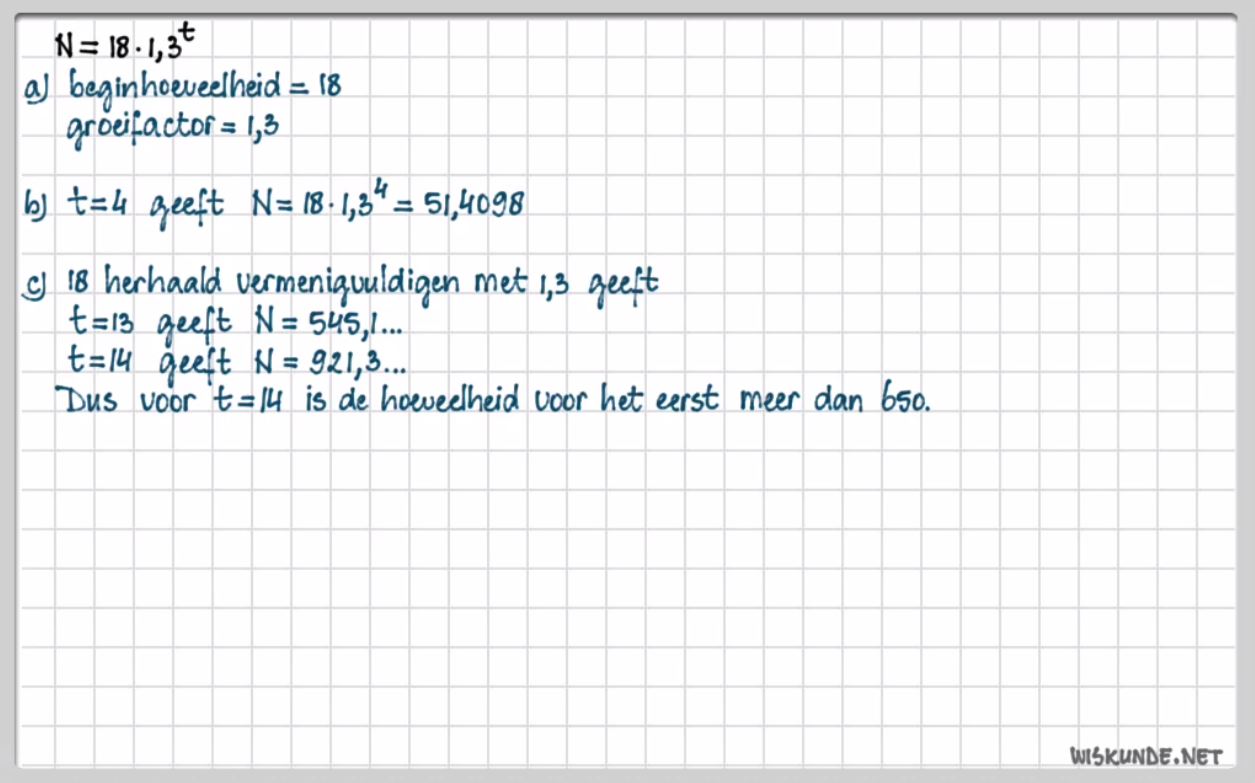 N = 18 · 1,3^t
a) beginhoeveelheid = 18
groeifactor = 1,3
b) t=4 geeft N = 18 · 1,3^4 = 51,4098
c) 18 herhaald vermenigvuldigen met 1,3 geeft
t=13 geeft N = 545,1...
t=14 geeft N = 921,3...
Dus voor t=14 is de hoeveelheid voor het eerst meer dan 650.
WISKUNDE.NET